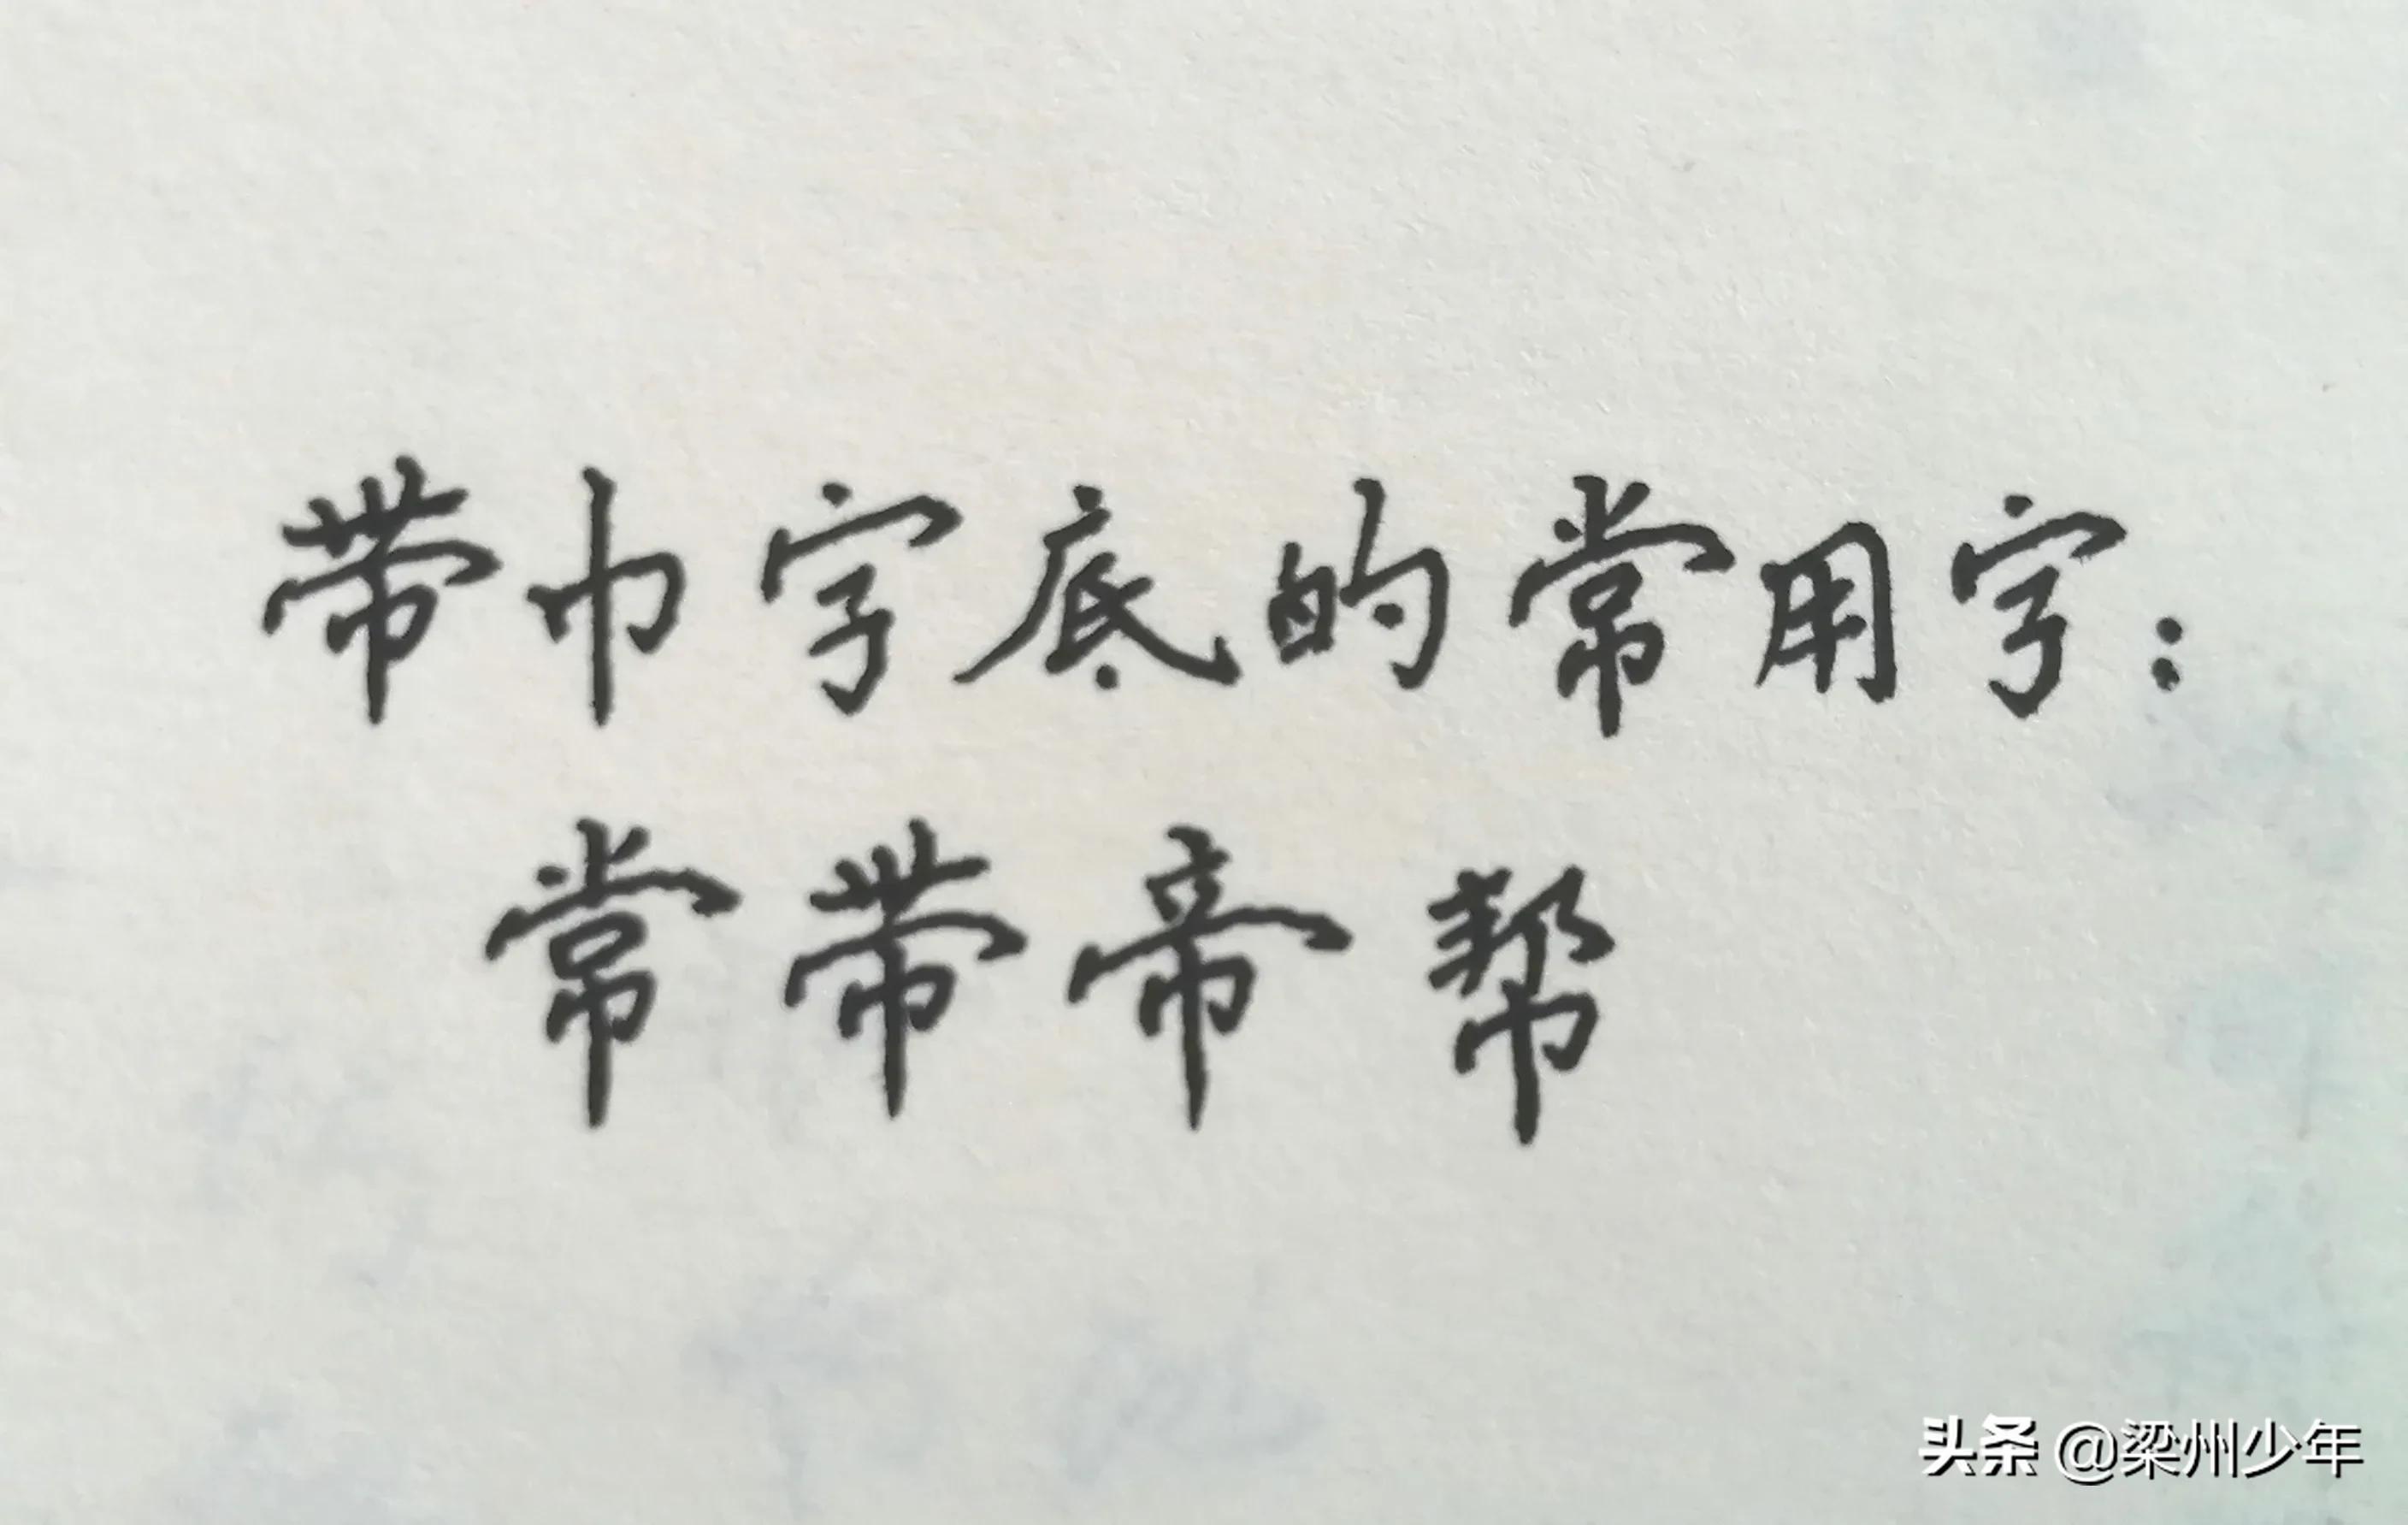 带巾字底的常用字：
常带帝帮
头条 @梁州少年